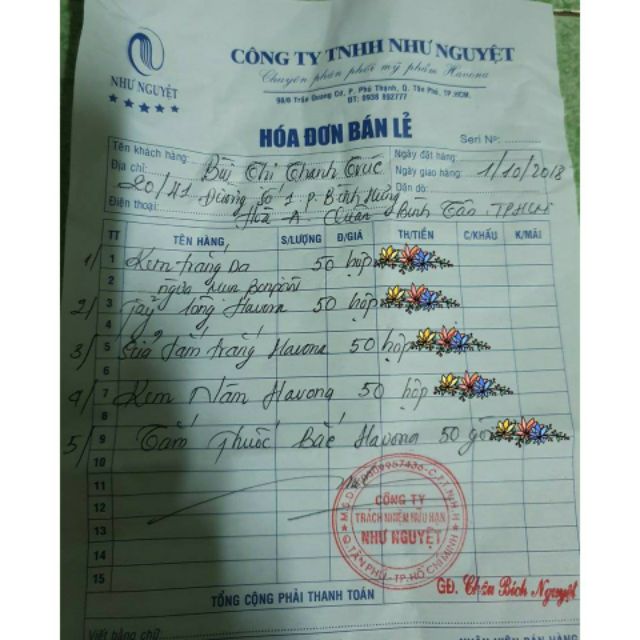 CÔNG TY TNHH NHƯ NGUYỆT
Chuyên phân phối mỹ phẩm Havona
NHƯ NGUYỆT
98/6 Trần Quang Cơ, P. Phú Thạnh, Q. Tân Phú, TP.HCM.
ĐT: 0938 892777
HÓA ĐƠN BÁN LẺ
Seri Nº:
Tên khách hàng: Bùi Thị Thanh Trúc
Ngày đặt hàng:
Địa chỉ: 20/41 Đường số 1 P. Bình Hưng
Ngày giao hàng: 1/10/2018
Hòa A. Quận Bình Tân. TPHCM
Dặn dò:
Điện thoại:
TT TÊN HÀNG S/LƯỢNG Đ/GIÁ TH/TIỀN C/KHẤU K/MÃI
1/ 1 Kem trắng da 50 hộp
2 ngừa mụn
2/ 3 Tẩy lông Havona 50 hộp
4
3/ 5 tắm trắng Havona 50 hộp
6
4/ 7 Kem Nám Havona 50 hộp
8
5/ 9 Tắm Thuốc Bắc Havona 50 gói
10
11
12
13
14
15
CÔNG TY
TRÁCH NHIỆM HỮU HẠN
NHƯ NGUYỆT
Q. TÂN PHÚ - TP. HỒ CHÍ MINH
TỔNG CỘNG PHẢI THANH TOÁN
GĐ. Trần Bích Nguyệt
Viết bằng chữ
NHÂN VIÊN BÁN HÀNG